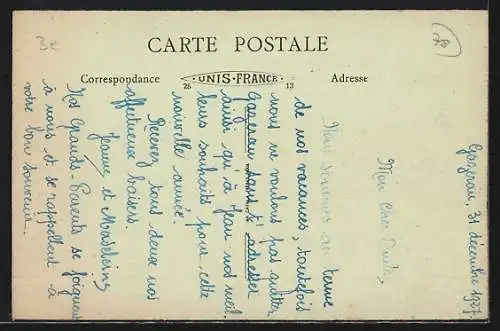 3x
CARTE POSTALE
Correspondance
UNIS-FRANCE
25
13
Adresse
Gazeran, 31 décembre 1927.
Mon Cher
Nous sommes au terme
de nos vacances, toutefois
nous ne voulons pas quitter
Gazeran sans t' adresser
ainsi qu'à Jean nos meil-
leurs souhaits pour cette
nouvelle année.
Recevez tous deux nos
affectueux baisers.
Jeanne et Madeleine
Nos Grands-Parents se joignent
à nous et se rappellent à
votre bon souvenir.